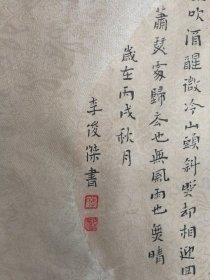 吹酒醒微冷山頭斜照却相迎回
蕭瑟處歸去也無風雨也無晴
歲在丙戌秋月
李俊傑書